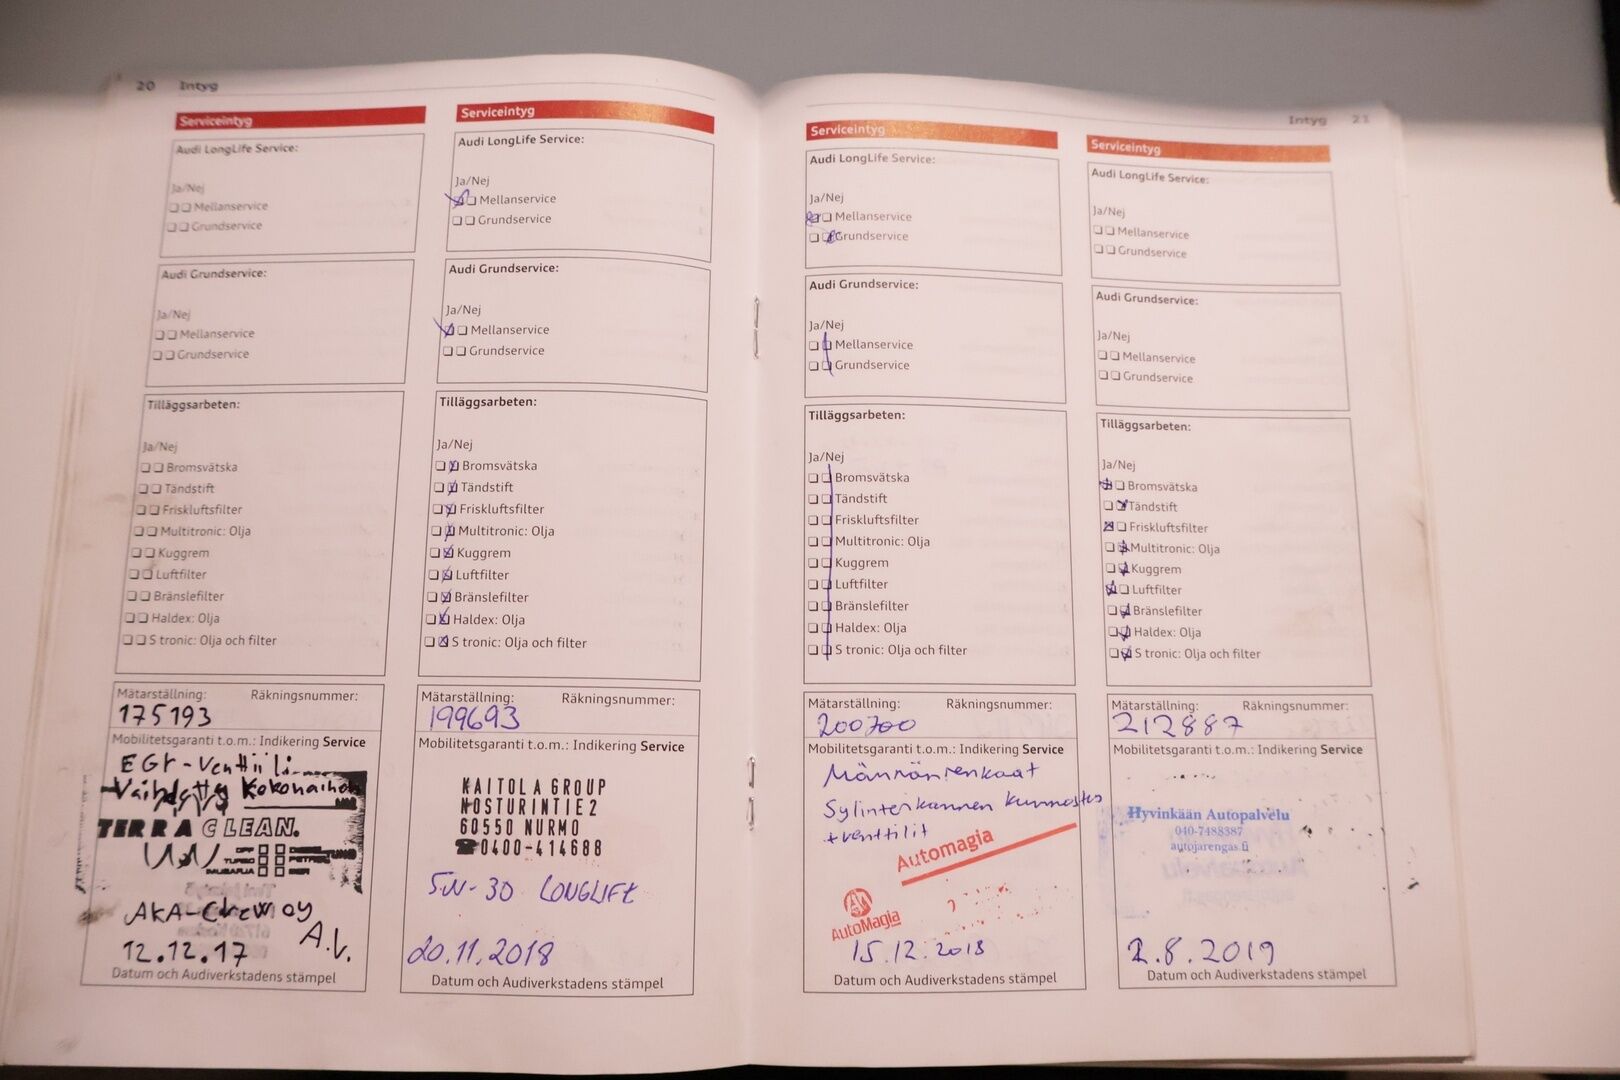 20 Intyg
Serviceintyg
Audi LongLife Service:
Ja/Nej
Mellanservice
Grundservice
Audi Grundservice:
Ja/Nej
Mellanservice
Grundservice
Tilläggsarbeten:
Ja/Nej
Bromsvätska
Tändstift
Friskluftsfilter
Multitronic: Olja
Kuggrem
Luftfilter
Bränslefilter
Haldex: Olja
S tronic: Olja och filter
Mätarställning: Räkningsnummer:
175193
Mobilitetsgaranti t.o.m.: Indikering Service
EGr-Venttiili
Vaihdettu Kokonaihon
TERRA CLEAN.
DPF
TURBO
IMUSARJA
AKA-Crew oy
A.V.
12.12.17
Datum och Audiverkstadens stämpel
Serviceintyg
Audi LongLife Service:
Ja/Nej
Mellanservice
Grundservice
Audi Grundservice:
Ja/Nej
Mellanservice
Grundservice
Tilläggsarbeten:
Ja/Nej
Bromsvätska
Tändstift
Friskluftsfilter
Multitronic: Olja
Kuggrem
Luftfilter
Bränslefilter
Haldex: Olja
S tronic: Olja och filter
Mätarställning: Räkningsnummer:
199693
Mobilitetsgaranti t.o.m.: Indikering Service
KAITOLA GROUP
NOSTURINTIE 2
60550 NURMO
☎0400-414688
5W-30 LONGLIFE
20.11.2018
Datum och Audiverkstadens stämpel
Intyg 21
Serviceintyg
Audi LongLife Service:
Ja/Nej
Mellanservice
Grundservice
Audi Grundservice:
Ja/Nej
Mellanservice
Grundservice
Tilläggsarbeten:
Ja/Nej
Bromsvätska
Tändstift
Friskluftsfilter
Multitronic: Olja
Kuggrem
Luftfilter
Bränslefilter
Haldex: Olja
S tronic: Olja och filter
Mätarställning: Räkningsnummer:
200700
Mobilitetsgaranti t.o.m.: Indikering Service
Männänrenkaat
Sylinterkannen kunnostus
+venttilit
Automagia
AutoMagia
15.12.2018
Datum och Audiverkstadens stämpel
Serviceintyg
Audi LongLife Service:
Ja/Nej
Mellanservice
Grundservice
Audi Grundservice:
Ja/Nej
Mellanservice
Grundservice
Tilläggsarbeten:
Ja/Nej
Bromsvätska
Tändstift
Friskluftsfilter
Multitronic: Olja
Kuggrem
Luftfilter
Bränslefilter
Haldex: Olja
S tronic: Olja och filter
Mätarställning: Räkningsnummer:
212887
Mobilitetsgaranti t.o.m.: Indikering Service
Hyvinkään Autopalvelu
040-7488387
autojarengas.fi
2.8.2019
Datum och Audiverkstadens stämpel